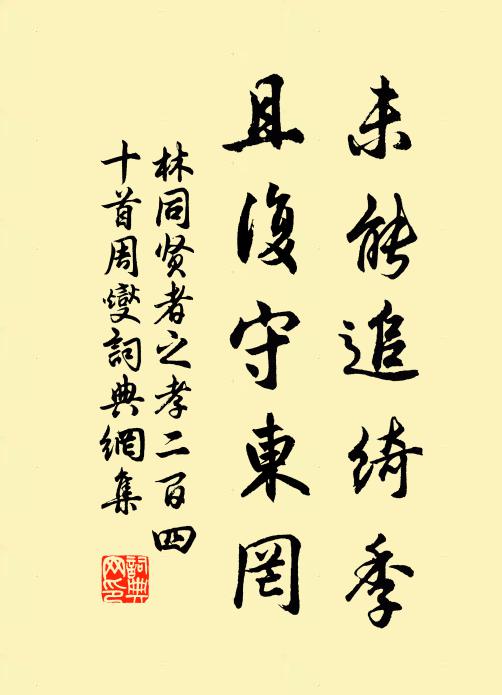 未能追綺季
且復守東罔
林同贤者之孝二百四
十首周燮詞典網集
詞典网印